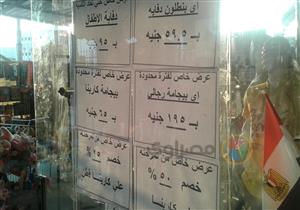 أى بنطلون دفاية
بـ ٥٩.٥ جنيه
دفاية الأطفال
بـ ٩٥ جنيه
عرض خاص لفترة محدودة
أى بيجامة رجالى
بـ ١٩٥ جنيه
عرض خاص لفترة محدودة
بيجامة كارينا
بـ ٦٥ جنيه
عرض خاص
خصم ٥٠ %
عرض خاص
خصم ١٥ %
على كارينا